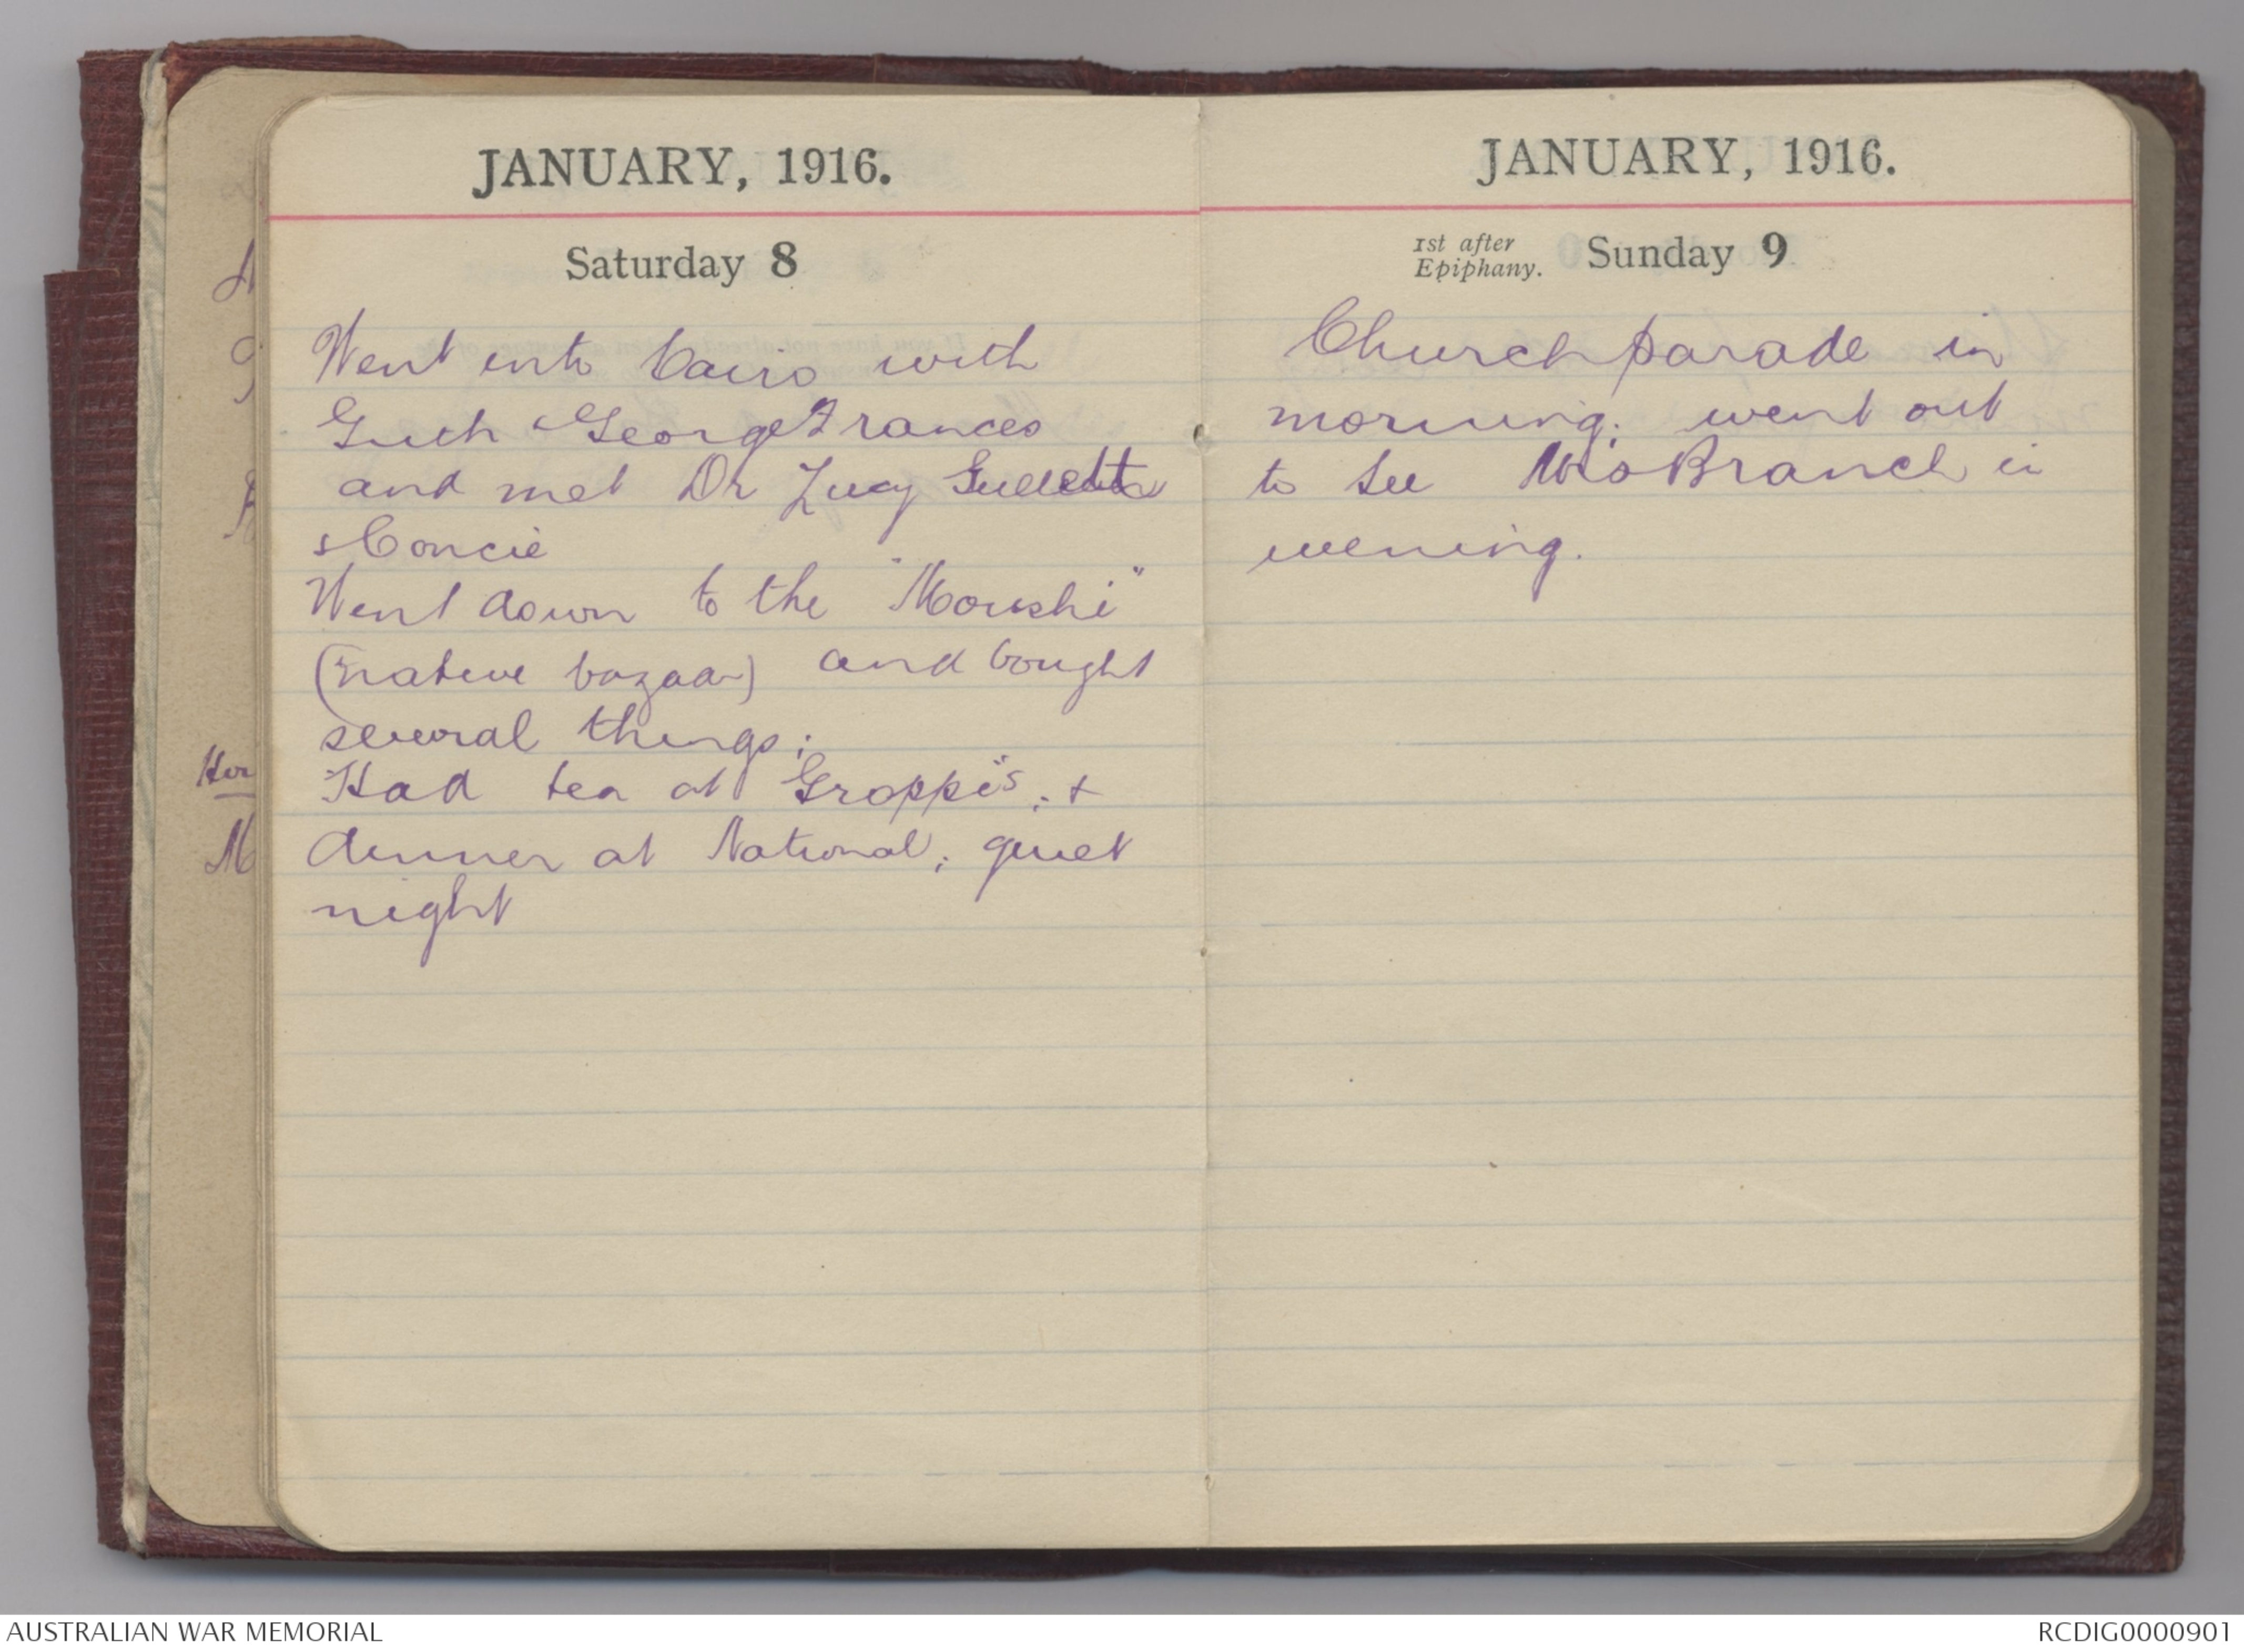 JANUARY, 1916.
Saturday 8
Went into Cairo with
George Frances
and met Dr Lucy
Went down to the "Mouski"
(native bazaar) and bought
several things;
Had tea at Groppi's, +
dinner at National; quiet
night
JANUARY, 1916.
1st after Epiphany. Sunday 9
Church parade in
morning; went out
to see Branch in
evening.
AUSTRALIAN WAR MEMORIAL
RCDIG0000901